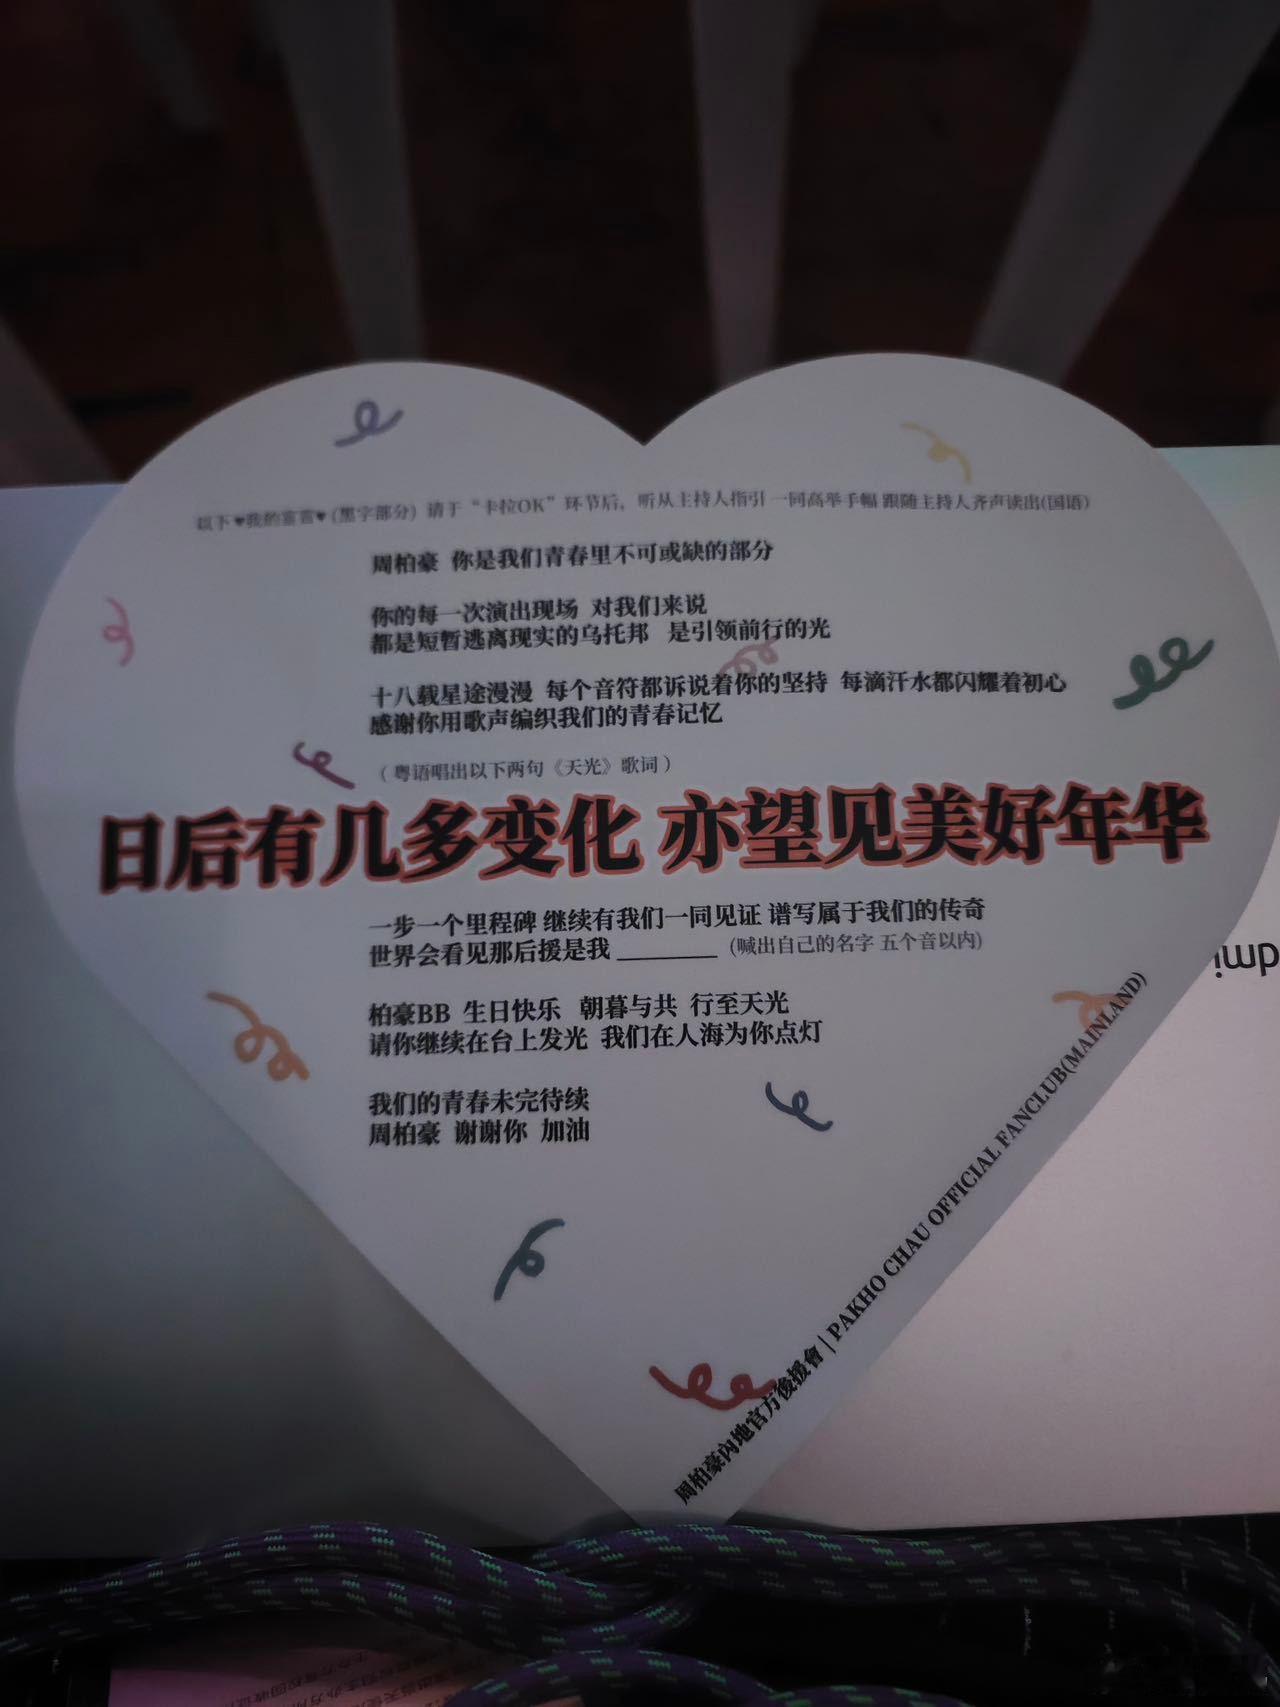 以下♥我的宣言♥(黑字部分) 请于“卡拉OK”环节后, 听从主持人指引 一同高举手幅 跟随主持人齐声读出(国语)
周柏豪 你是我们青春里不可或缺的部分
你的每一次演出现场 对我们来说
都是短暂逃离现实的乌托邦 是引领前行的光
十八载星途漫漫 每个音符都诉说着你的坚持 每滴汗水都闪耀着初心
感谢你用歌声编织我们的青春记忆
(粤语唱出以下两句《天光》歌词)
日后有几多变化 亦望见美好年华
一步一个里程碑 继续有我们一同见证 谱写属于我们的传奇
世界会看见那后援是我 ________ (喊出自己的名字 五个音以内)
柏豪BB 生日快乐 朝暮与共 行至天光
请你继续在台上发光 我们在人海为你点灯
我们的青春未完待续
周柏豪 谢谢你 加油
周柏豪內地官方後援會 | PAKHO CHAU OFFICIAL FANCLUB(MAINLAND)